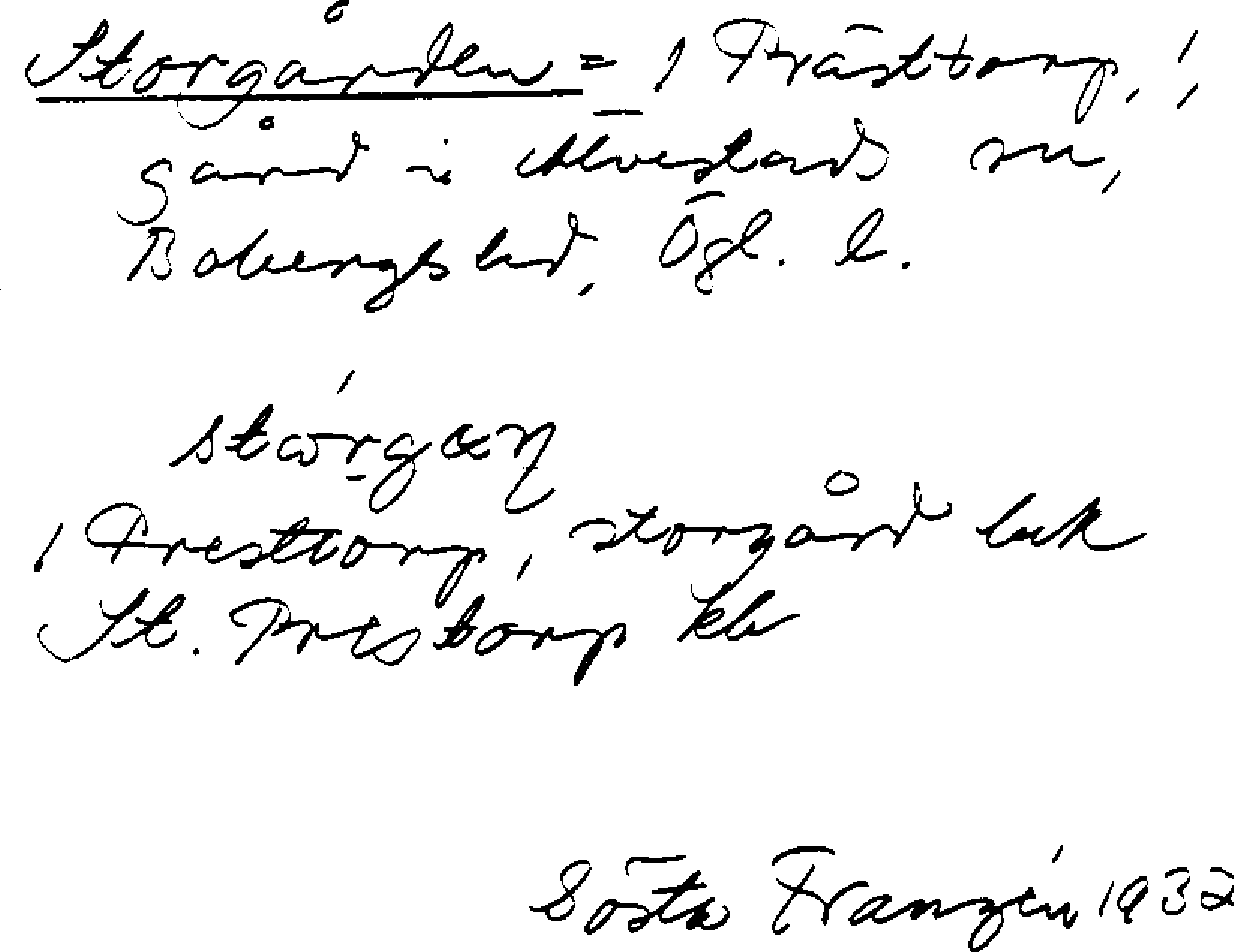 Storgården = 1 Prästtorp, 1,
gård i Alvestads sn,
Bobergs hd, Ögl. l.
stωrgαη
1 Presttorp, storgård luk
St. Prestorp kb
Gösta Franzén 1932